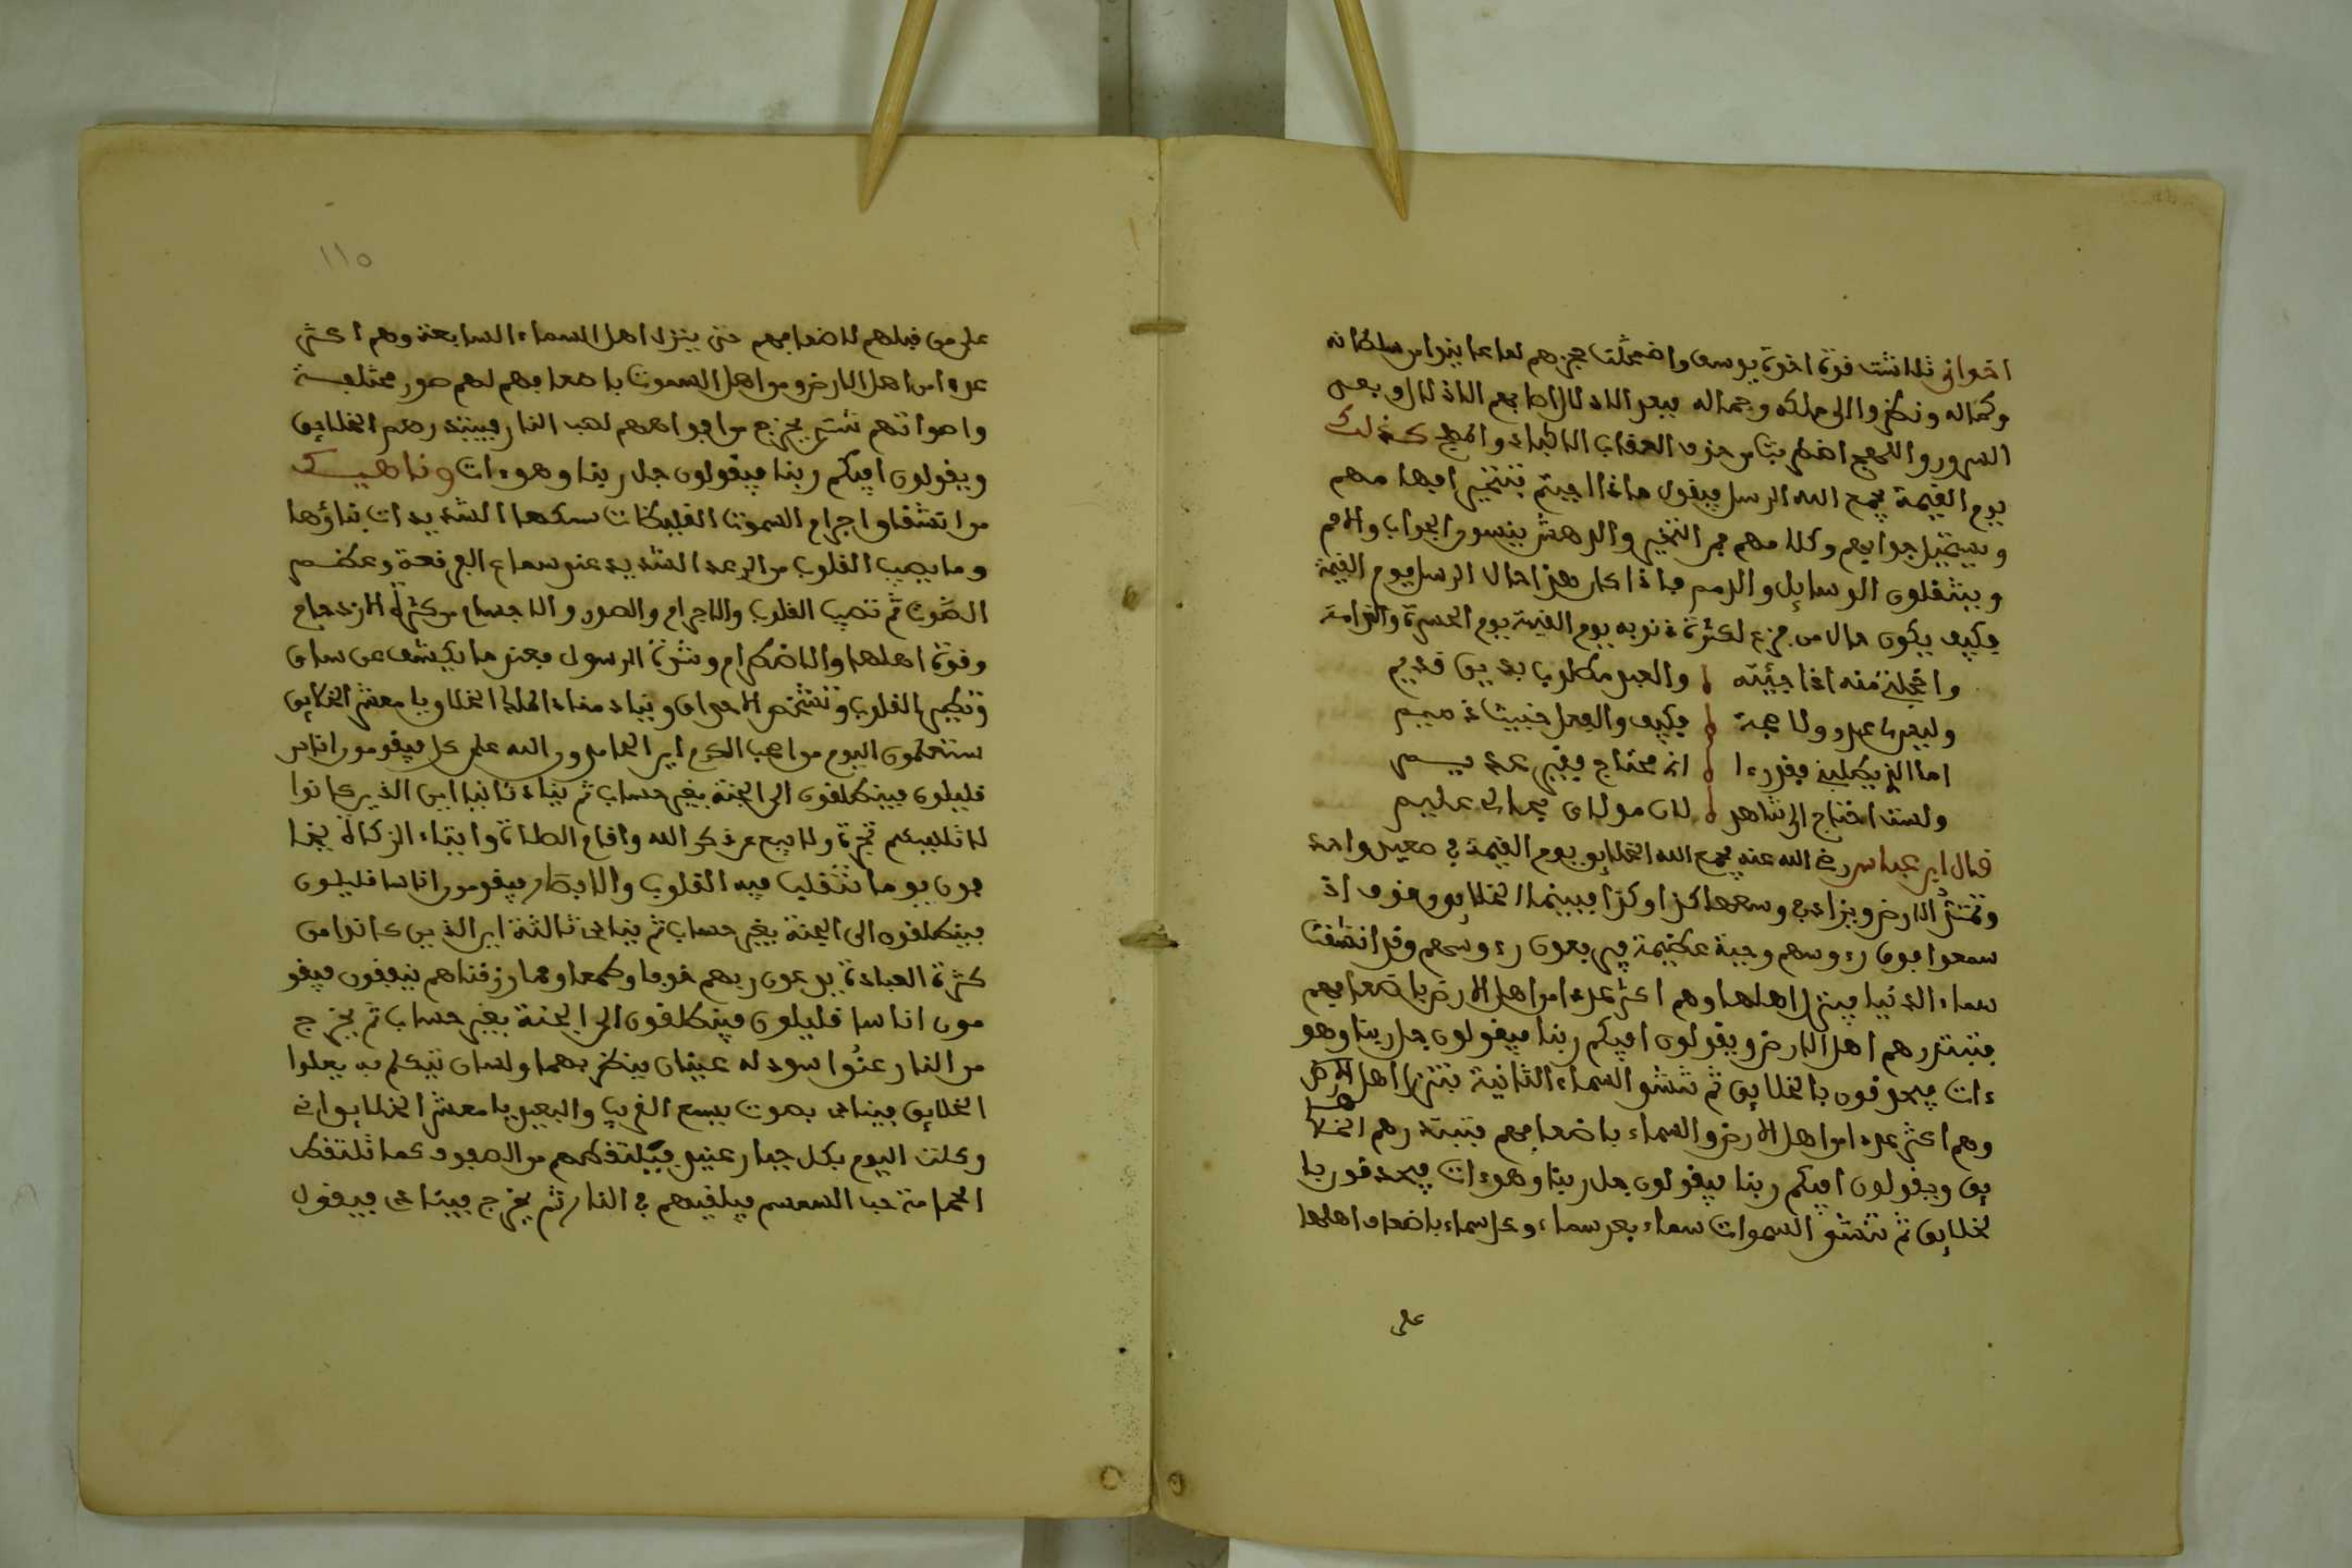 اخواني تلاشت قوة اخوة يوسف واضمحلت عجزهم لما عاينوا من سلطانه
وكماله ونظروا الى ملكه وجماله فبعد الادلال اصابهم الاذلال وبعد
السرور واللهج اضطربت من خوف العقاب الاكباد والمهج كذلك
يوم القيمة يجمع الله الرسل فيقول ماذا اجبتم فتتحير افهامهم
ويستحيل جوابهم وكلامهم فمن التحير والدهش ينسون الجواب والامم
ويثقلون الوسايل والذمم فاذا كان هذا حال الرسل يوم القيمة
فكيف يكون حال من جزع لكثرة ذنوبه يوم القيمة يوم الحسرة والندامة
واخجلتي منه اذا جئته والعبد مطلوب بدين قديم
وليس لي عذر ولا حجة فكيف والفعل خبيث ذميم
اما الذي يطلبني فقد رءا اني محتاج فقير عديم
ولست احتاج الى شاهد لان مولاي بحالي عليم
قال ابن عباس رضي الله عنه يجمع الله الخلايق يوم القيمة في صعيد واحد
وتمتد الارض ويزاد في وسعها كذا وكذا فبينما الخلايق وقوف اذ
سمعوا فوق رءوسهم وجبة عظيمة فيرفعون رءوسهم وقد انشقت
سماء الدنيا فينزل اهلها وهم اكثر عددا من اهل الارض باضعافهم
فتبتدرهم اهل الارض ويقولون افيكم ربنا فيقولون جل ربنا وهو
ءات فيحدقون بالخلايق ثم تنشق السماء الثانية فتنزل اهل الارض
وهم اكثر عددا من اهل الارض والسماء باضعافهم فتبتدرهم الخلا
يق ويقولون افيكم ربنا فيقولون جل ربنا وهو ءات فيحدقون با
لخلايق ثم تنشق السموات سماء بعد سماء وكل سماء باضعاف اهلها
على
١١٥
على من قبلهم لاضعافهم حتى ينزل اهل السماء السابعة وهم اكثر
عددا من اهل الارض ومن اهل السموت باضعافهم لهم صور مختلفة
واصواتهم شتى يخرج من افواههم لهب النار فيبتدرهم الخلايق
ويقولون افيكم ربنا فيقولون جل ربنا وهو ءات وناهيك
من انشقاق اجرام السموت الغليظات سمكها الشديدات بناؤها
وما يصيب القلوب من الرعد الشديد عند سماع الفرقعة وعظم
الصوت ثم تصيب القلوب والاجرام والصور والاجسام من كثرة الازدحام
وقوة اهلها والاضطرام وشدة الرسول فعند ما يكشف عن ساق
وتطير القلوب وتشخص الاحداق وينادي مناد الملك الخلاق يا معشر الخلايق
ستعلمون اليوم من اهل الكرم اين الحامدون الله على كل فيقومون اناس
قليلون فينطلقون الى الجنة بغير حساب ثم يناد ثانيا اين الذين كانوا
لا تلهيهم تجرة ولا بيع عن ذكر الله واقام الصلاة وايتاء الزكاة يخا
فون يوما تتقلب فيه القلوب والابصار فيقومون اناسا قليلون
فينطلقون الى الجنة بغير حساب ثم ينادى ثالثة اين الذين كانوا من
كثرة العبادة يدعون ربهم خوفا وطمعا ومما رزقناهم ينفقون فيقو
مون اناسا قليلون فينطلقون الى الجنة بغير حساب ثم يخرج
من النار عنق اسود له عينان ينظر بهما ولسان يتكلم به يعلوا
الخلايق فينادى بصوت يسمع القريب والبعيد يا معشر الخلايق اني
وكلت اليوم بكل جبار عنيد فيلتقطهم من الصفوف كما تلتقط
الحمامة حب السمسم فيلقيهم في النار ثم يخرج فينادى فيقول